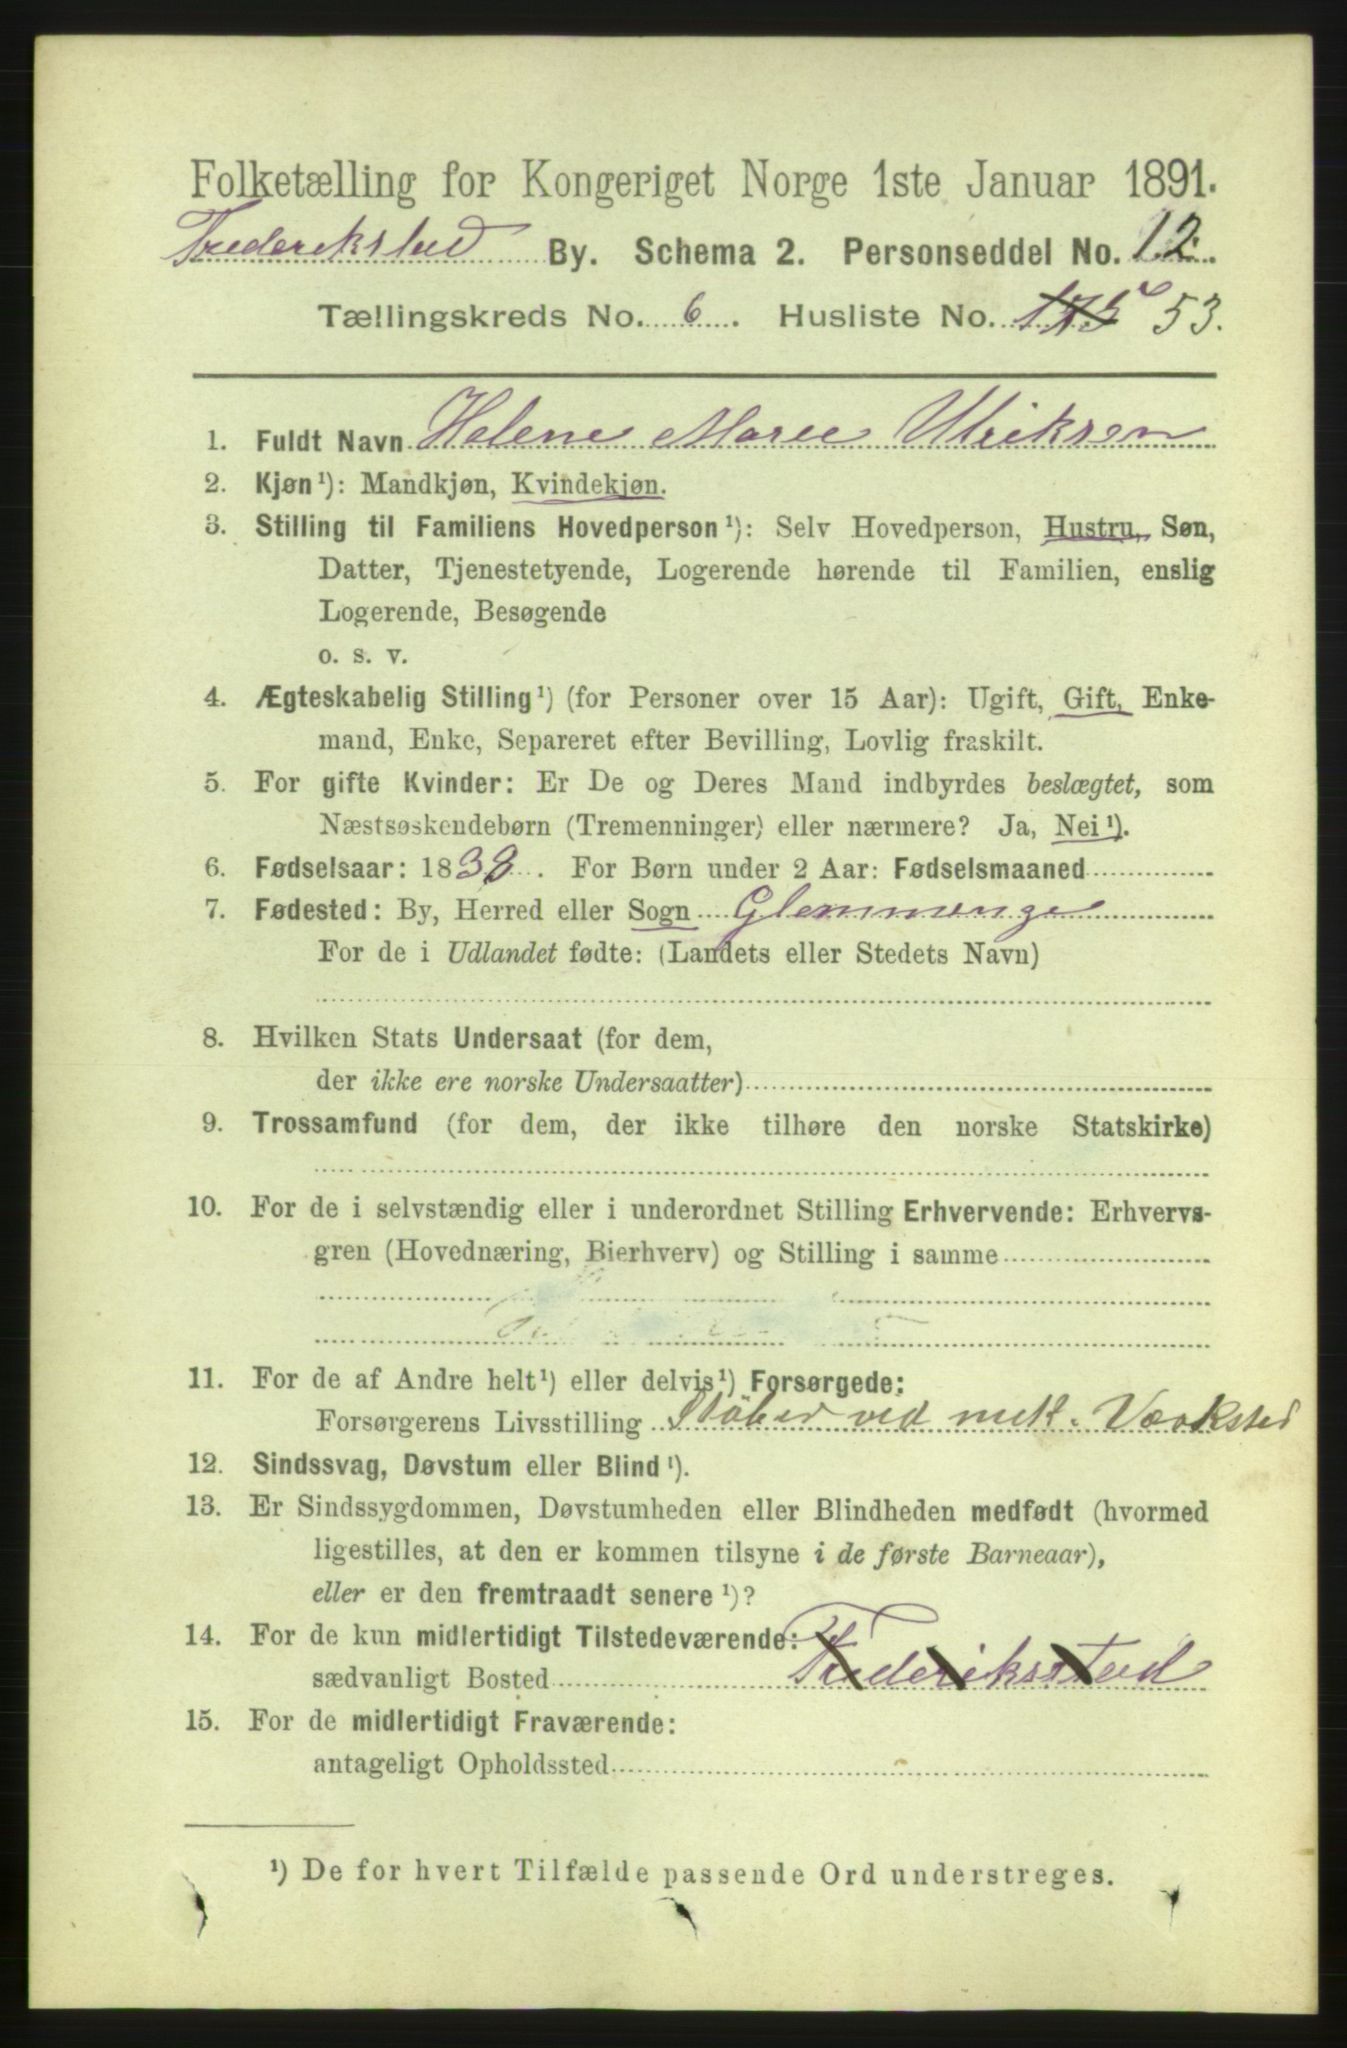 Folketælling for Kongeriget Norge 1ste Januar 1891.
Frederikstad By. Schema 2. Personseddel No. 12.
Tællingskreds No. 6. Husliste No. 53.
1. Fuldt Navn Helene Marie Ulriksen
2. Kjøn¹): Mandkjøn, Kvindekjøn.
3. Stilling til Familiens Hovedperson¹): Selv Hovedperson, Hustru, Søn,
Datter, Tjenestetyende, Logerende hørende til Familien, enslig
Logerende, Besøgende
o. s. v.
4. Ægteskabelig Stilling¹) (for Personer over 15 Aar): Ugift, Gift, Enke-
mand, Enke, Separeret efter Bevilling, Lovlig fraskilt.
5. For gifte Kvinder: Er De og Deres Mand indbyrdes beslægtet, som
Næstsøskendebørn (Tremenninger) eller nærmere? Ja, Nei¹).
6. Fødselsaar: 1838. For Børn under 2 Aar: Fødselsmaaned
7. Fødested: By, Herred eller Sogn Glemmenge
For de i Udlandet fødte: (Landets eller Stedets Navn)
8. Hvilken Stats Undersaat (for dem,
der ikke ere norske Undersaatter)
9. Trossamfund (for dem, der ikke tilhøre den norske Statskirke)
10. For de i selvstændig eller i underordnet Stilling Erhvervende: Erhvervs-
gren (Hovednæring, Bierhverv) og Stilling i samme
11. For de af Andre helt¹) eller delvis¹) Forsørgede:
Forsørgerens Livsstilling Støber ved mek. Værksted
12. Sindssvag, Døvstum eller Blind¹).
13. Er Sindssygdommen, Døvstumheden eller Blindheden medfødt (hvormed
ligestilles, at den er kommen tilsyne i de første Barneaar),
eller er den fremtraadt senere¹)?
14. For de kun midlertidigt Tilstedeværende:
sædvanligt Bosted Frederiksstad
15. For de midlertidigt Fraværende:
antageligt Opholdssted
¹) De for hvert Tilfælde passende Ord understreges.